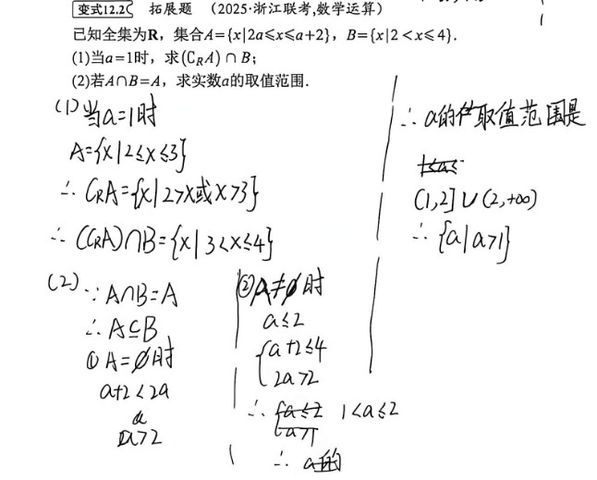 变式12.2 拓展题 (2025·浙江联考,数学运算)
已知全集为R,集合A={x|2a≤x≤a+2},B={x|2<x≤4}.
(1)当a=1时,求(∁RA)∩B;
(2)若A∩B=A,求实数a的取值范围.
(1)当a=1时
A={x|2≤x≤3}
∴ CRA={x|2>x或x>3}
∴ (CRA)∩B={x|3<x≤4}
(2) ∵A∩B=A
∴A⊆B
①A=∅时
a+2<2a
a
a>2
②A≠∅时
a≤2
{a+2≤4
2a>2
∴ {a≤2 1<a≤2
a>1
∴ a的
∴a的取值范围是
1<a≤
(1,2]∪(2,+∞)
∴{a|a>1}